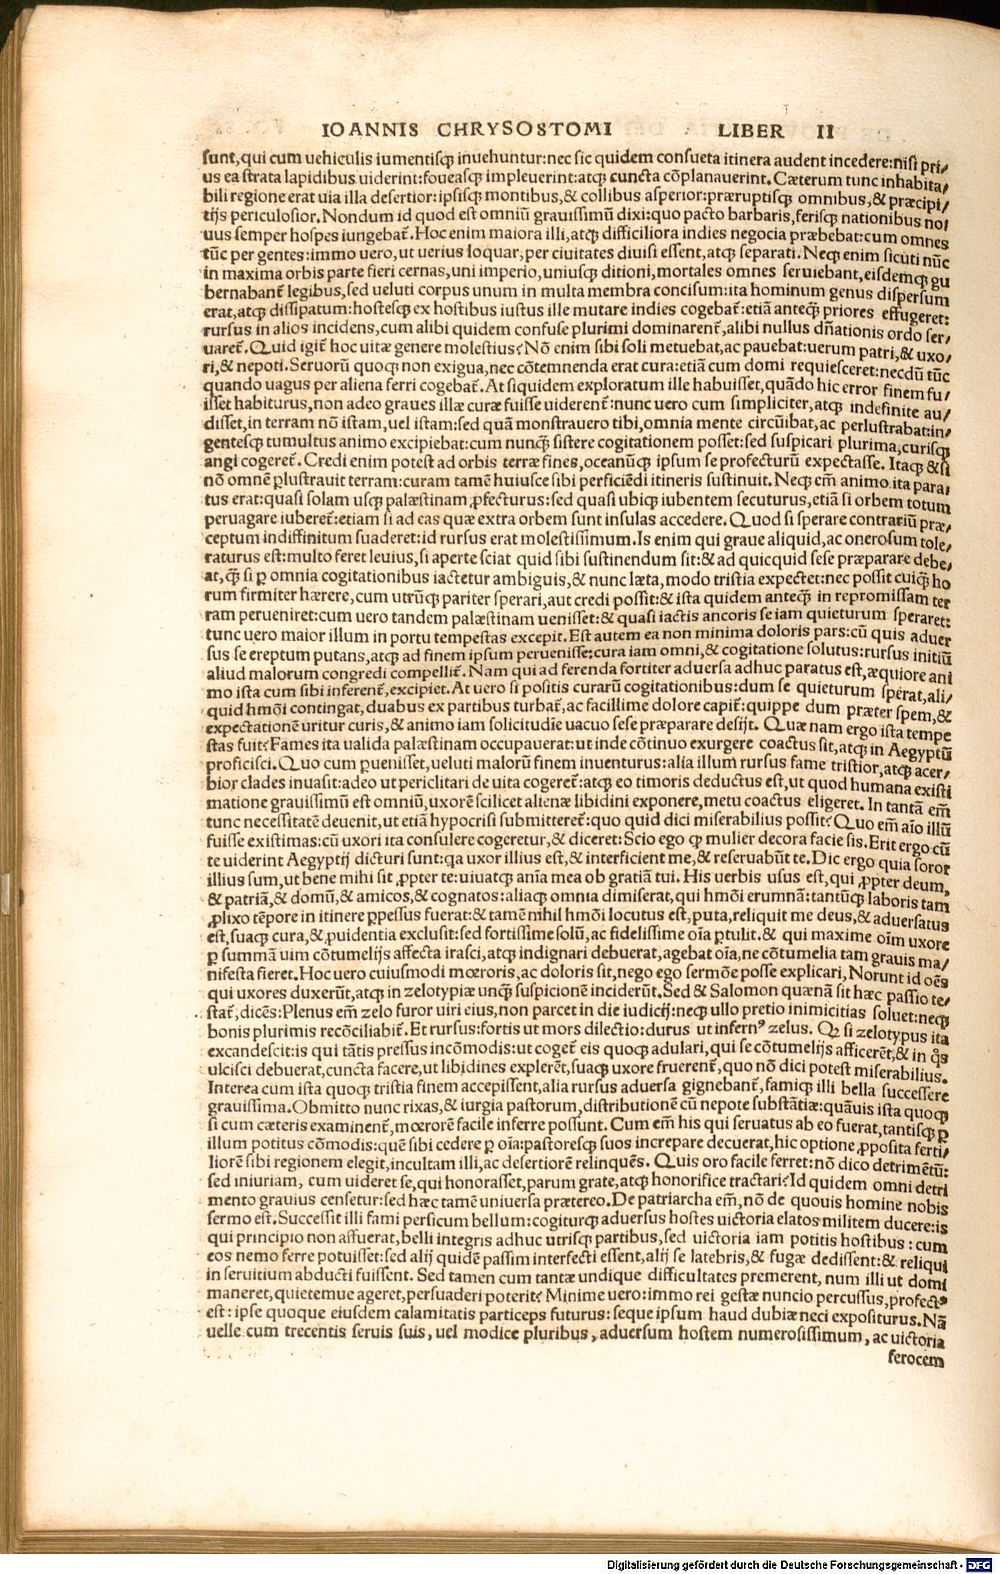 IOANNIS CHRYSOSTOMI LIBER II
sunt,qui cum uehiculis iumentisqꝫ inuehuntur:nec sic quidem consueta itinera audent incedere:nisi pri/
us ea strata lapidibus uiderint:foueasqꝫ impleuerint:atqꝫ cuncta cõplanauerint.Cæterum tunc inhabita/
bili regione erat uia illa desertior:ipsisqꝫ montibus,& collibus asperior:præruptisqꝫ omnibus,& præcipi/
tijs periculosior.Nondum id quod est omniũ grauissimũ dixi:quo pacto barbaris,ferisqꝫ nationibus no/
uus semper hospes iungebat̃.Hoc enim maiora illi,atqꝫ difficiliora indies negocia præbebat:cum omnes
tũc per gentes:immo uero,ut uerius loquar,per ciuitates diuisi essent,atqꝫ separati.Neqꝫ enim sicuti nũc
in maxima orbis parte fieri cernas,uni imperio,uniusqꝫ ditioni,mortales omnes seruiebant,eisdemqꝫ gu
bernabant̃ legibus,sed ueluti corpus unum in multa membra concisum:ita hominum genus dispersum
erat,atqꝫ dissipatum:hostesqꝫ ex hostibus iustus ille mutare indies cogebat̃:etiã anteqꝫ̃ priores effugeret:
rursus in alios incidens,cum alibi quidem confuse plurimi dominarent̃,alibi nullus dñationis ordo ser/
uaret̃.Quid igit̃ hoc uitæ genere molestius?Nõ enim sibi soli metuebat,ac pauebat:uerum patri,& uxo/
ri,& nepoti.Seruorũ quoqꝫ non exigua,nec cõtemnenda erat cura:etiã cum domi requiesceret:necdũ tũc
quando uagus per aliena ferri cogebat̃.At siquidem exploratum ille habuisset,quãdo hic error finem fu/
isset habiturus,non adeo graues illæ curæ fuisse uiderent̃:nunc uero cum simpliciter,atqꝫ indefinite au/
disset,in terram nõ istam,uel istam:sed quã monstrauero tibi,omnia mente circũibat,ac perlustrabat:in/
gentesqꝫ tumultus animo excipiebat:cum nunqꝫ̃ sistere cogitationem posset:sed suspicari plurima,curisqꝫ
angi cogeret̃.Credi enim potest ad orbis terræ fines,oceanũqꝫ ipsum se profecturũ expectasse.Itaqꝫ &si
nõ omnẽ ꝑlustrauit terram:curam tamẽ huiusce sibi perficiẽdi itineris sustinuit.Neqꝫ em̃ animo ita para/
tus erat:quasi solam usqꝫ palæstinam ꝓfecturus:sed quasi ubiqꝫ iubentem secuturus,etiã si orbem totum
peruagare iuberet̃:etiam si ad eas quæ extra orbem sunt insulas accedere.Quod si sperare contrariũ præ/
ceptum indiffinitum suaderet:id rursus erat molestissimum.Is enim qui graue aliquid,ac onerosum tole/
raturus est:multo feret leuius,si aperte sciat quid sibi sustinendum sit:& ad quicquid sese præparare debe/
at,qꝫ̃ si ꝑ omnia cogitationibus iactetur ambiguis,& nunc læta,modo tristia expectet:nec possit cuiqꝫ ho
rum firmiter hærere,cum utrũqꝫ pariter sperari,aut credi possit:& ista quidem anteqꝫ̃ in repromissam ter
ram perueniret:cum uero tandem palæstinam uenisset:& quasi iactis ancoris se iam quieturum speraret:
tunc uero maior illum in portu tempestas excepit.Est autem ea non minima doloris pars:cũ quis aduer
sus se ereptum putans,atqꝫ ad finem ipsum peruenisse:cura iam omni,& cogitatione solutus:rursus initiũ
aliud malorum congredi compellit̃.Nam qui ad ferenda fortiter aduersa adhuc paratus est,æquiore ani
mo ista cum sibi inferent̃,excipiet.At uero si positis curarũ cogitationibus:dum se quieturum sperat,ali/
quid hmõi contingat,duabus ex partibus turbat̃,ac facillime dolore capit̃:quippe dum præter spem,&
expectationẽ uritur curis,& animo iam solicitudĩe uacuo sese præparare desijt. Quæ nam ergo ista tempe
stas fuit?Fames ita ualida palæstinam occupauerat:ut inde cõtinuo exurgere coactus sit,atqꝫ in Aegyptũ
proficisci.Quo cum ꝑuenisset,ueluti malorũ finem inuenturus:alia illum rursus fame tristior,atqꝫ acer/
bior clades inuasit:adeo ut periclitari de uita cogeret̃:atqꝫ eo timoris deductus est,ut quod humana existi
matione grauissimũ est omniũ,uxorẽ scilicet alienæ libidini exponere,metu coactus eligeret.In tantã em̃
tunc necessitatẽ deuenit,ut etiã hypocrisi submitteret̃:quo quid dici miserabilius possit?Quo em̃ aĩo illũ
fuisse existimas:cũ uxori ita consulere cogeretur,& diceret:Scio ego qꝫ mulier decora facie sis.Erit ergo cũ
te uiderint Aegyptij dicturi sunt:qa uxor illius est,& interficient me,& reseruabũt te.Dic ergo quia soror
illius sum,ut bene mihi sit ꝓpter te:uiuatqꝫ anĩa mea ob gratiã tui.His uerbis usus est,qui ꝓpter deum,
& patriã,& domũ,& amicos,& cognatos:aliaqꝫ omnia dimiserat,qui hmõi erumnã:tantũqꝫ laboris tam
ꝓlixo tẽpore in itinere ꝑpessus fuerat:& tamẽ nihil hmõi locutus est,puta,reliquit me deus,& aduersatus
est,suaqꝫ cura,& ꝓuidentia exclusit:sed fortissime solũ,ac fidelissime oĩa ꝑtulit.& qui maxime oĩm uxore
ꝑ summã uim cõtumelijs affecta irasci,atqꝫ indignari debuerat,agebat oĩa,ne cõtumelia tam grauis ma/
nifesta fieret.Hoc uero cuiusmodi mœroris,ac doloris sit,nego ego sermõe posse explicari,Norunt id oẽs
qui uxores duxerũt,atqꝫ in zelotypiæ unqꝫ̃ suspicionẽ inciderũt.Sed & Salomon quænã sit hæc passio te/
stat̃,dicẽs:Plenus em̃ zelo furor uiri eius,non parcet in die iudicij:neqꝫ ullo pretio inimicitias soluet:neqꝫ
bonis plurimis recõciliabit̃.Et rursus:fortis ut mors dilectio:durus ut infernꝰ zelus. Qꝫ si zelotypus ita
excandescit:is qui tãtis pressus incõmodis:ut coget̃ eis quoqꝫ adulari,qui se cõtumelijs afficerẽt,& in q̃s
ulcisci debuerat,cuncta facere,ut libidines explerẽt,suaqꝫ uxore fruerent̃,quo nõ dici potest miserabilius.
Interea cum ista quoqꝫ tristia finem accepissent,alia rursus aduersa gignebant̃,famiqꝫ illi bella successere
grauissima.Obmitto nunc rixas,& iurgia pastorum,distributionẽ cũ nepote substãtiæ:quãuis ista quoqꝫ
si cum cæteris examinent̃,mœrorẽ facile inferre possunt. Cum em̃ his qui seruatus ab eo fuerat,tantisqꝫ ꝑ
illum potitus cõmodis:quẽ sibi cedere ꝑ oĩa:pastoresqꝫ suos increpare decuerat,hic optione ꝓposita ferti/
liorẽ sibi regionem elegit,incultam illi,ac desertiorẽ relinquẽs. Quis oro facile ferret:nõ dico detrimẽtũ:
sed iniuriam, cum uideret se,qui honorasset,parum grate,atqꝫ honorifice tractari?Id quidem omni detri
mento grauius censetur:sed hæc tamẽ uniuersa prætereo.De patriarcha em̃,nõ de quouis homine nobis
sermo est.Successit illi fami persicum bellum:cogiturqꝫ aduersus hostes uictoria elatos militem ducere:is
qui principio non affuerat,belli integris adhuc utrisqꝫ partibus,sed uictoria iam potitis hostibus:cum
eos nemo ferre potuisset:sed alij quidẽ passim interfecti essent,alij se latebris,& fugæ dedissent:& reliqui
in seruitium abducti fuissent. Sed tamen cum tantæ undique difficultates premerent, num illi ut domi
maneret,quietemue ageret,persuaderi poterit? Minime uero:immo rei gestæ nuncio percussus,profectꝰ
est:ipse quoque eiusdem calamitatis particeps futurus:seque ipsum haud dubiæ neci expositurus.Nã
uelle cum trecentis seruis suis,uel modice pluribus,aduersum hostem numerosissimum,ac uictoria
ferocem
Digitalisierung gefördert durch die Deutsche Forschungsgemeinschaft - DFG